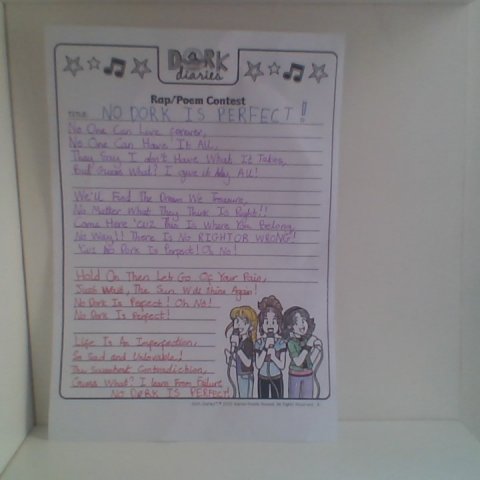 DORK
diaries
Rap/Poem Contest
TITLE: NO DORK IS PERFECT!
No One Can Live Forever,
No One Can Have It All,
They Say I don't Have What It Takes,
But Guess What? I give it My All!
We'll Find The Dream We Treasure,
No Matter What They Think Is Right!!
Come Here 'cuz This Is Where You Belong,
No Way!! There Is No RIGHT OR WRONG!
'Cuz No Dork Is Perfect! Oh No!
Hold On Then Let Go Of Your Pain,
Just Wait, The Sun Will Shine Again!
No Dork Is Perfect! Oh No!
No Dork Is Perfect!
Life Is An Imperfection,
So Sad and Unlovable!
The Sweetest Contradiction,
Guess What? I learn From Failure
NO DORK IS PERFECT!